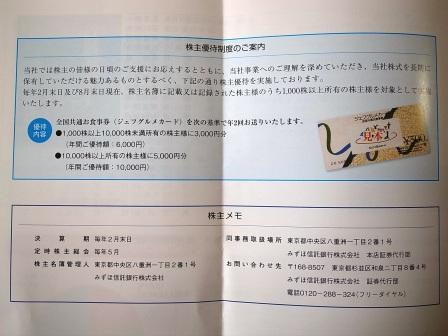 株主優待制度のご案内
当社では株主の皆様の日頃のご支援にお応えするとともに、当社事業へのご理解を深めていただき、当社株式を長期に
保有していただける魅力あるものとするべく、下記の通り株主優待を実施しております。
毎年2月末日及び8月末日現在、株主名簿に記載又は記録された株主様のうち1,000株以上所有の株主様を対象として実施
いたします。
優待
内容
全国共通お食事券（ジェフグルメカード）を次の基準で年2回お送りいたします。
●1,000株以上10,000株未満所有の株主様に3,000円分
（年間ご優待額：6,000円）
●10,000株以上所有の株主様に5,000円分
（年間ご優待額：10,000円）
見本
株主メモ
決算期 毎年2月末日
定時株主総会 毎年5月
株主名簿管理人 東京都中央区八重洲一丁目2番1号
みずほ信託銀行株式会社
同事務取扱場所 東京都中央区八重洲一丁目2番1号
みずほ信託銀行株式会社 本店証券代行部
お問い合わせ先 〒168-8507 東京都杉並区和泉二丁目8番4号
みずほ信託銀行株式会社 証券代行部
電話0120-288-324（フリーダイヤル）